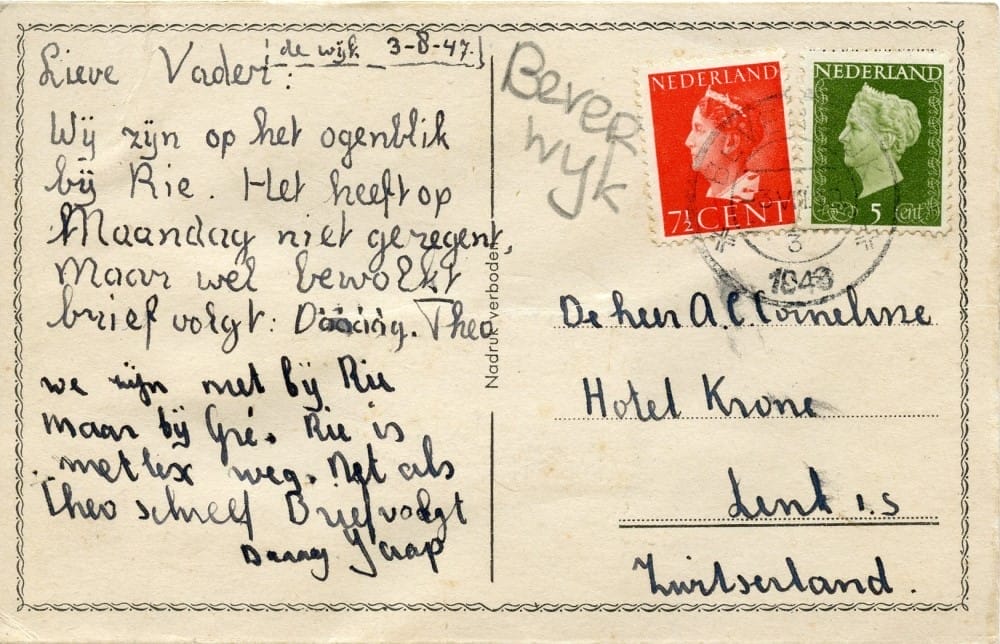 Lieve Vader:
[de wijk 3-8-47.]
Wij zijn op het ogenblik
bij Rie. Het heeft op
Maandag niet geregent,
maar wel bewolkt
brief volgt: Daaaag. Theo
we zijn niet bij Rie
maar bij Gré. Rie is
met lex weg. Net als
Theo schreef Brief volgt
Daaag Jaap
Nadruk verboden
Bever
wyk
NEDERLAND
7½ CENT
NEDERLAND
5 cent
3
De heer A.C. Cornelisse
Hotel Krone
Lenk i.s
Zwitserland.